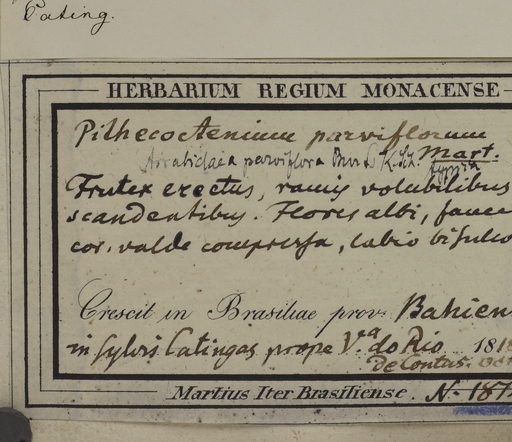 Cating.
HERBARIUM REGIUM MONACENSE
Pithecoctenium parviflorum
Mart.
Arrabidaea parviflora Bur & K. Sch. typus
Frutex erectus, ramis volubilibus
scandentibus. Flores albi, fauce
cor. valde compressa, labio bisulco
Crescit in Brasiliae prov. Bahien
in sylvis Catingas prope V.ea do Rio 181
de Contas.
Martius Iter Brasiliense. N. 187